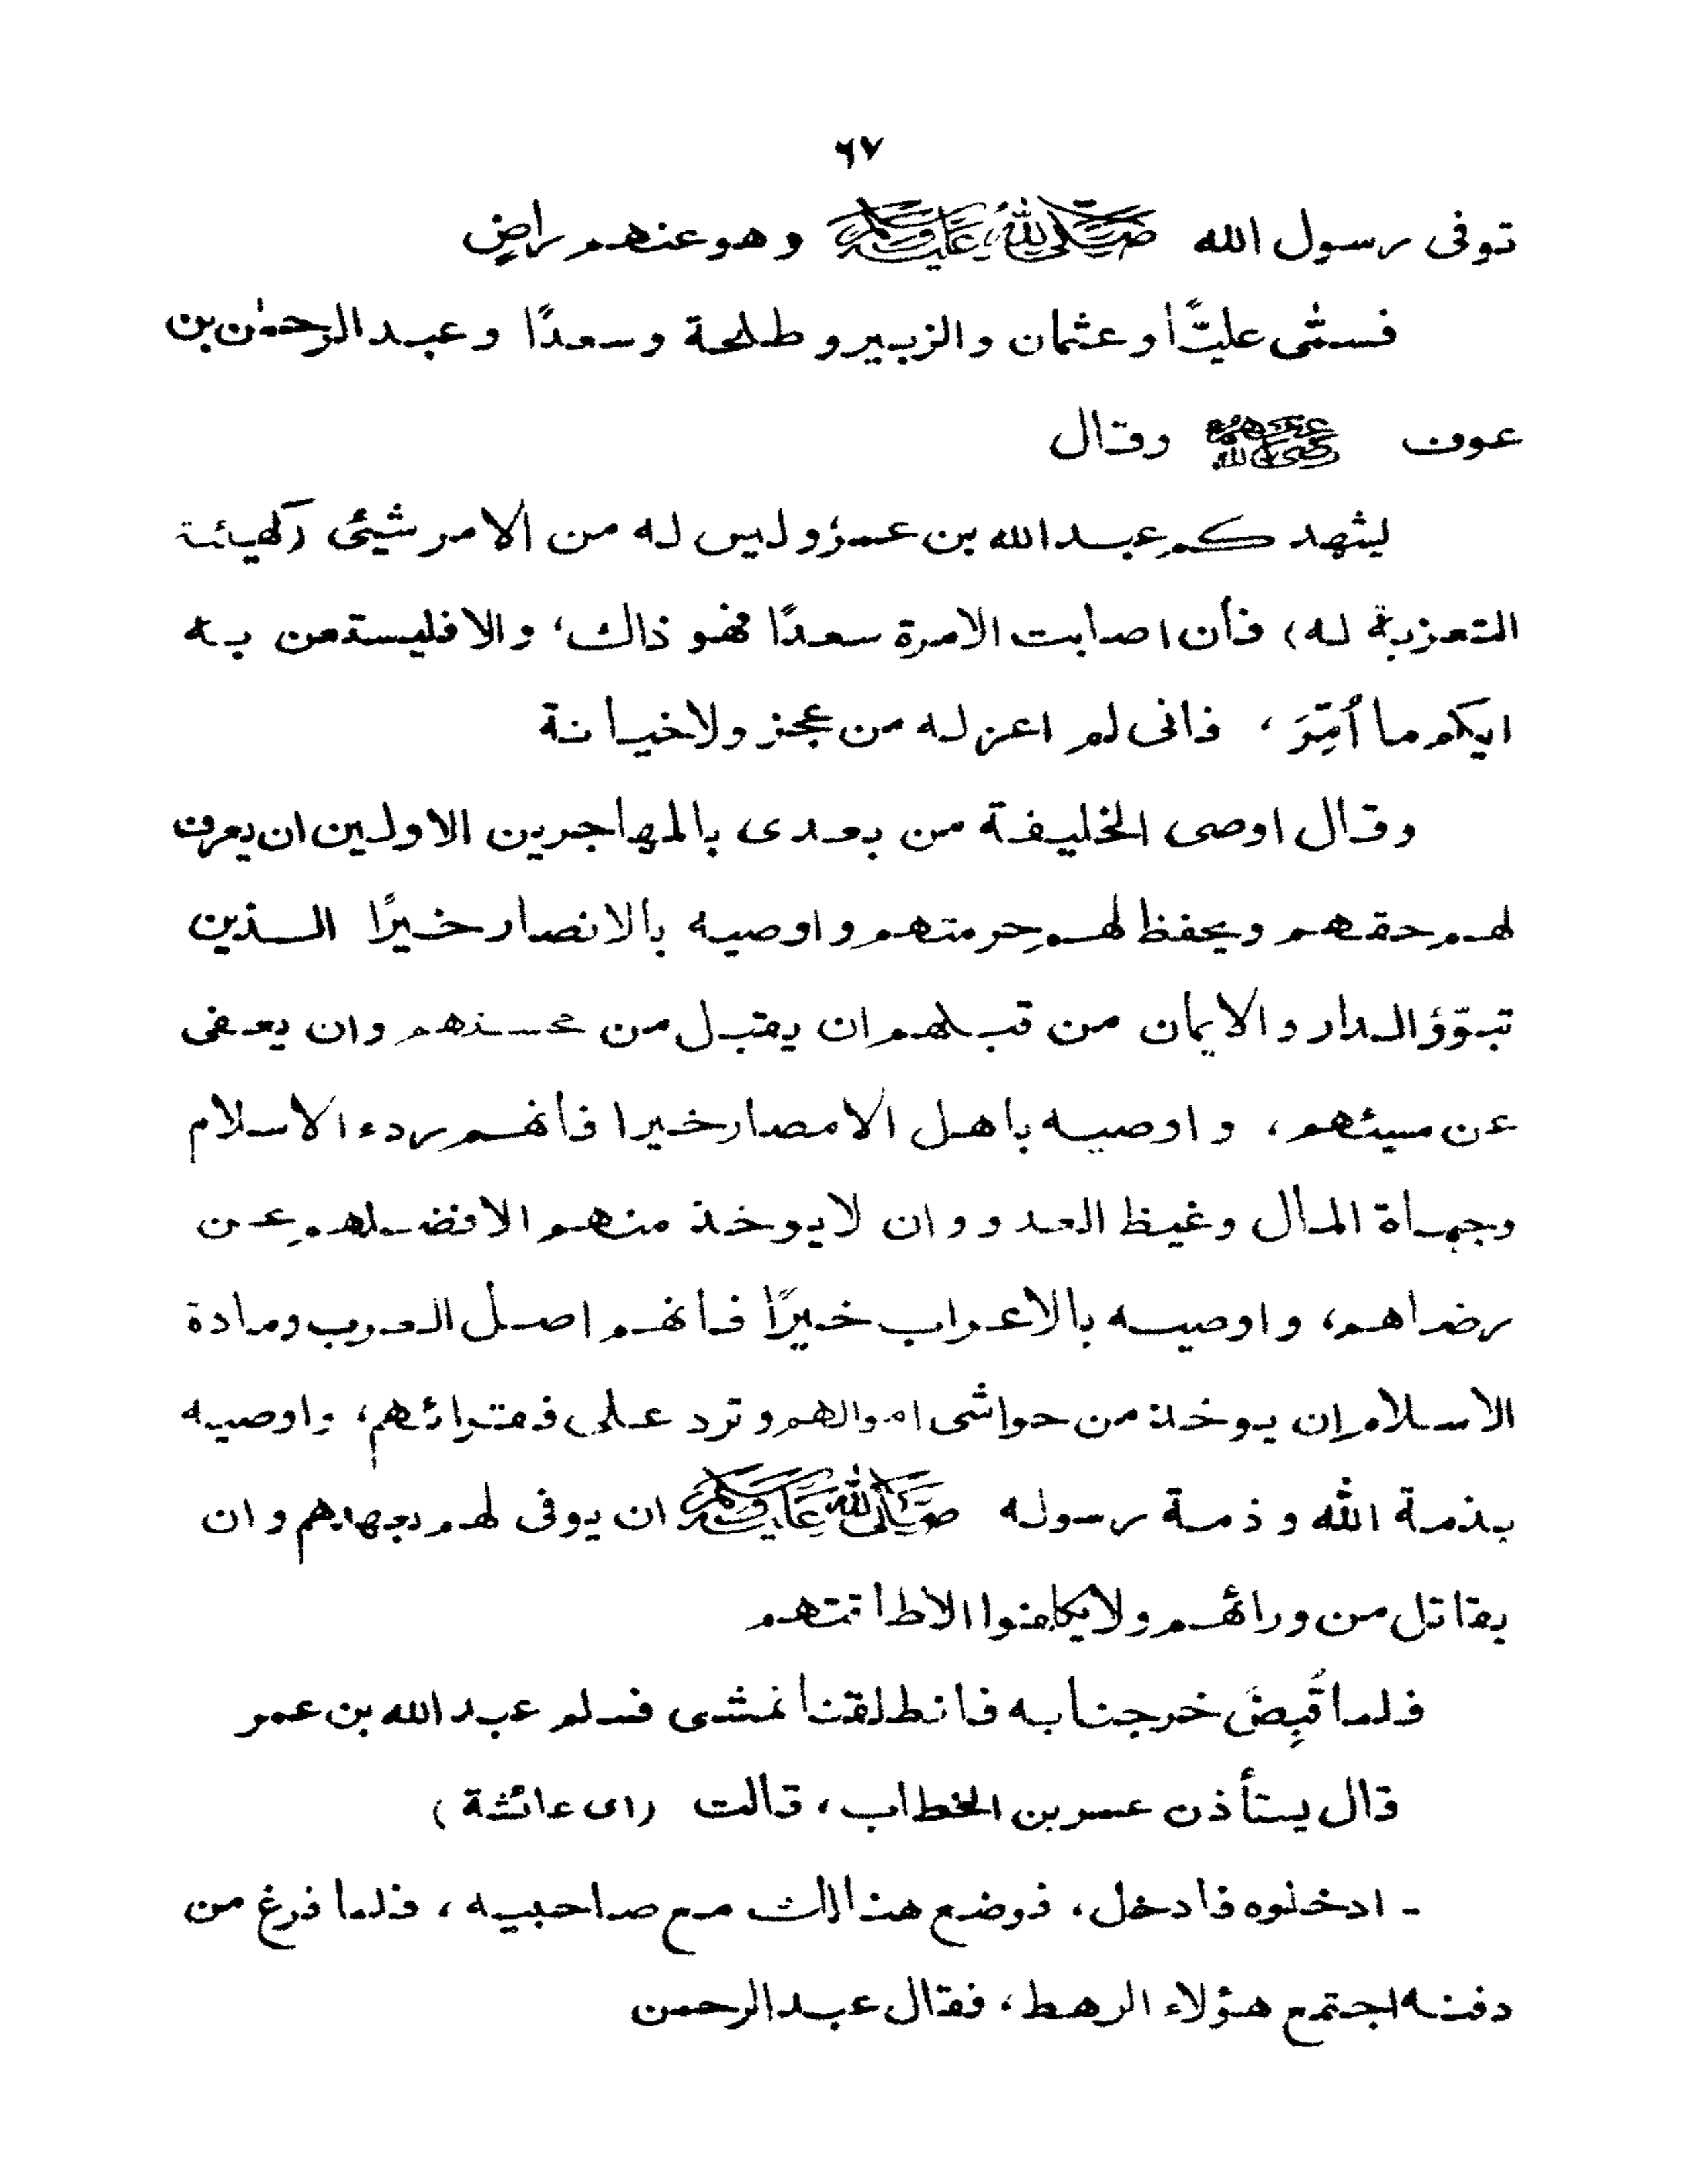 ٦٧
توفى رسول الله صلى الله عليه وسلم وهو عنهم راضٍ
فسمّى عليًّا وعثمان والزبير وطلحة وسعدًا وعبد الرحمٰن بن
عوف رضى الله عنهم وقال
ليشهدكم عبد الله بن عمرؓ وليس له من الامر شيئى (كهيئة
التعزية له) فأن اصابت الامرة سعدًا فهو ذاك، والا فليستعن به
ايكم ما أُمِّرَ، فانى لم اعزله من عجز ولا خيانة
وقال اوصى الخليفة من بعدى بالمهاجرين الاولين ان يعرف
لهم حقهم ويحفظ لهم حرمتهم واوصيه بالانصار خيرًا الذين
تبوّؤ الدار والايمان من قبلهم ان يقبل من محسنهم وان يعفى
عن مسيئهم، واوصيه باهل الامصار خيرا فأنهم ردء الاسلام
وجباة المال وغيظ العدو وان لا يوخذ منهم الا فضلهم عن
رضاهم، واوصيه بالاعراب خيرًا فانهم اصل العرب ومادة
الاسلام ان يوخذ من حواشى اموالهم وترد على فقرائهم، واوصيه
بذمة الله وذمة رسوله صلى الله عليه وسلم ان يوفى لهم بعهدهم وان
يقاتل من ورائهم ولا يكلفوا الا طاقتهم
فلما قُبِضَ خرجنا به فانطلقنا نمشى فسلم عبد الله بن عمر
قال يستأذن عمر بن الخطاب، قالت (اى عائشة)
- ادخلوه فادخل، فوضع هنالك مع صاحبيه، فلما فرغ من
دفنه اجتمع هؤلاء الرهط، فقال عبد الرحمن